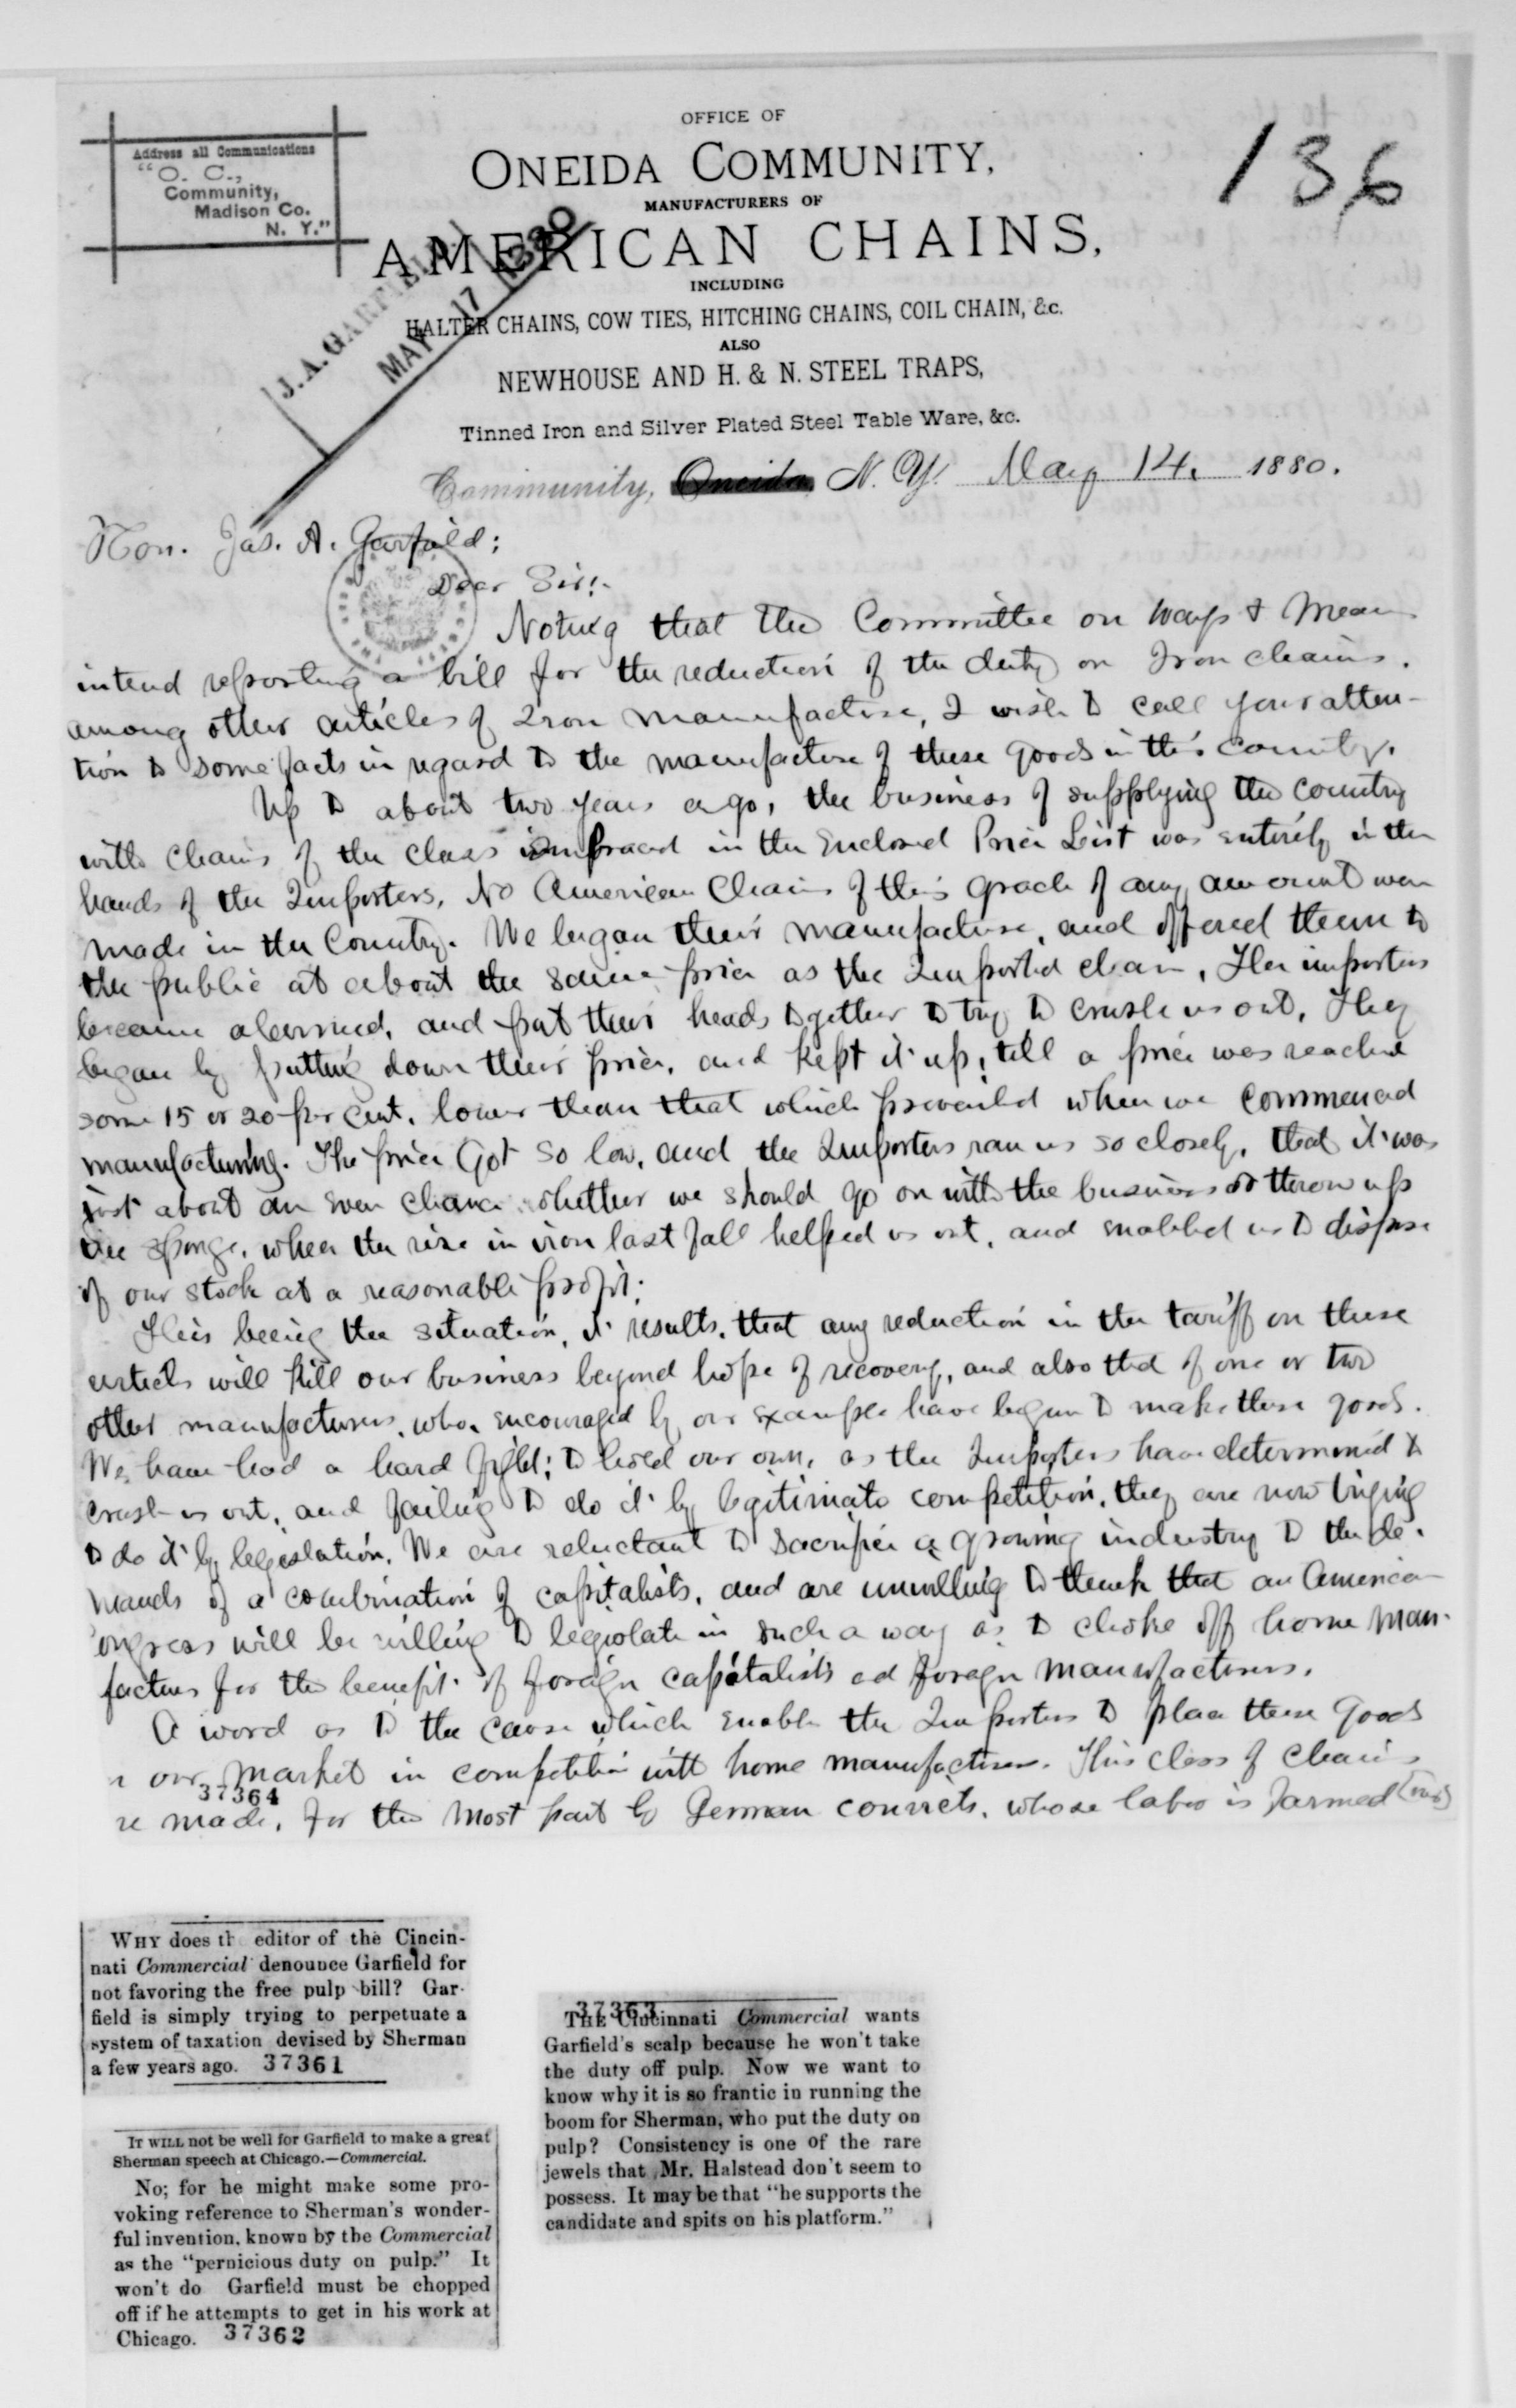 136
OFFICE OF
ONEIDA COMMUNITY,
MANUFACTURERS OF
AMERICAN CHAINS,
INCLUDING
HALTER CHAINS, COW TIES, HITCHING CHAINS, COIL CHAIN, &c.
ALSO
NEWHOUSE AND H. & N. STEEL TRAPS,
Tinned Iron and Silver Plated Steel Table Ware, &c.
Address all Communications
"O. C.,
Community,
Madison Co.
N. Y."
J. A. GARFIELD
MAY 17 1880
Community, Oneida N. Y. May 14, 1880.
Hon. Jas. A. Garfield;
Dear Sir:-
Noting that the Committee on Ways & Means
intend reporting a bill for the reduction of the duty on Iron chains,
among other articles of Iron manufacture, I wish to call your atten-
tion to some facts in regard to the manufacture of these goods in this country.
Up to about two years ago, the business of supplying the country
with chains of the class embraced in the enclosed Price List was entirely in the
hands of the Importers. No American Chains of this grade of any amount were
made in the Country. We began their manufacture, and offered them to
the public at about the same price as the Imported chain. The importers
became alarmed, and put their heads together to try to crush us out. They
began by putting down their price, and kept it up, till a price was reached
some 15 or 20 per cent. lower than that which prevailed when we commenced
manufacturing. The price Got so low, and the Importers ran us so closely, that it was
just about an even chance whether we should go on with the business or throw up
the sponge, when the rise in iron last fall helped us out, and enabled us to dispose
of our stock at a reasonable profit.
This being the situation, it results, that any reduction in the tariff on these
articles will kill our business beyond hope of recovery, and also that of one or two
other manufacturers, who, encouraged by our example have begun to make these goods.
We have had a hard fight to hold our own, as the Importers have determined to
crush us out, and failing to do it by legitimate competition, they are now trying
to do it by legislation. We are reluctant to sacrifice a growing industry to the de-
mands of a combination of capitalists, and are unwilling to think that an American
ongress will be willing to legislate in such a way as to choke off home man-
factures for the benefit of foreign capitalists ad foreign manufacturers.
A word as to the cause which enable the Importers to place these goods
n our market in competition with home manufacturers. This class of chains
37364
re made, for the most part by German convicts, whose labor is farmed
WHY does th editor of the Cincin-
nati Commercial denounce Garfield for
not favoring the free pulp bill? Gar-
field is simply trying to perpetuate a
system of taxation devised by Sherman
a few years ago. 37361
IT WILL not be well for Garfield to make a great
Sherman speech at Chicago.—Commercial.
No; for he might make some pro-
voking reference to Sherman's wonder-
ful invention, known by the Commercial
as the "pernicious duty on pulp." It
won't do Garfield must be chopped
off if he attempts to get in his work at
Chicago. 37362
37363
THE Cincinnati Commercial wants
Garfield's scalp because he won't take
the duty off pulp. Now we want to
know why it is so frantic in running the
boom for Sherman, who put the duty on
pulp? Consistency is one of the rare
jewels that Mr. Halstead don't seem to
possess. It may be that "he supports the
candidate and spits on his platform."